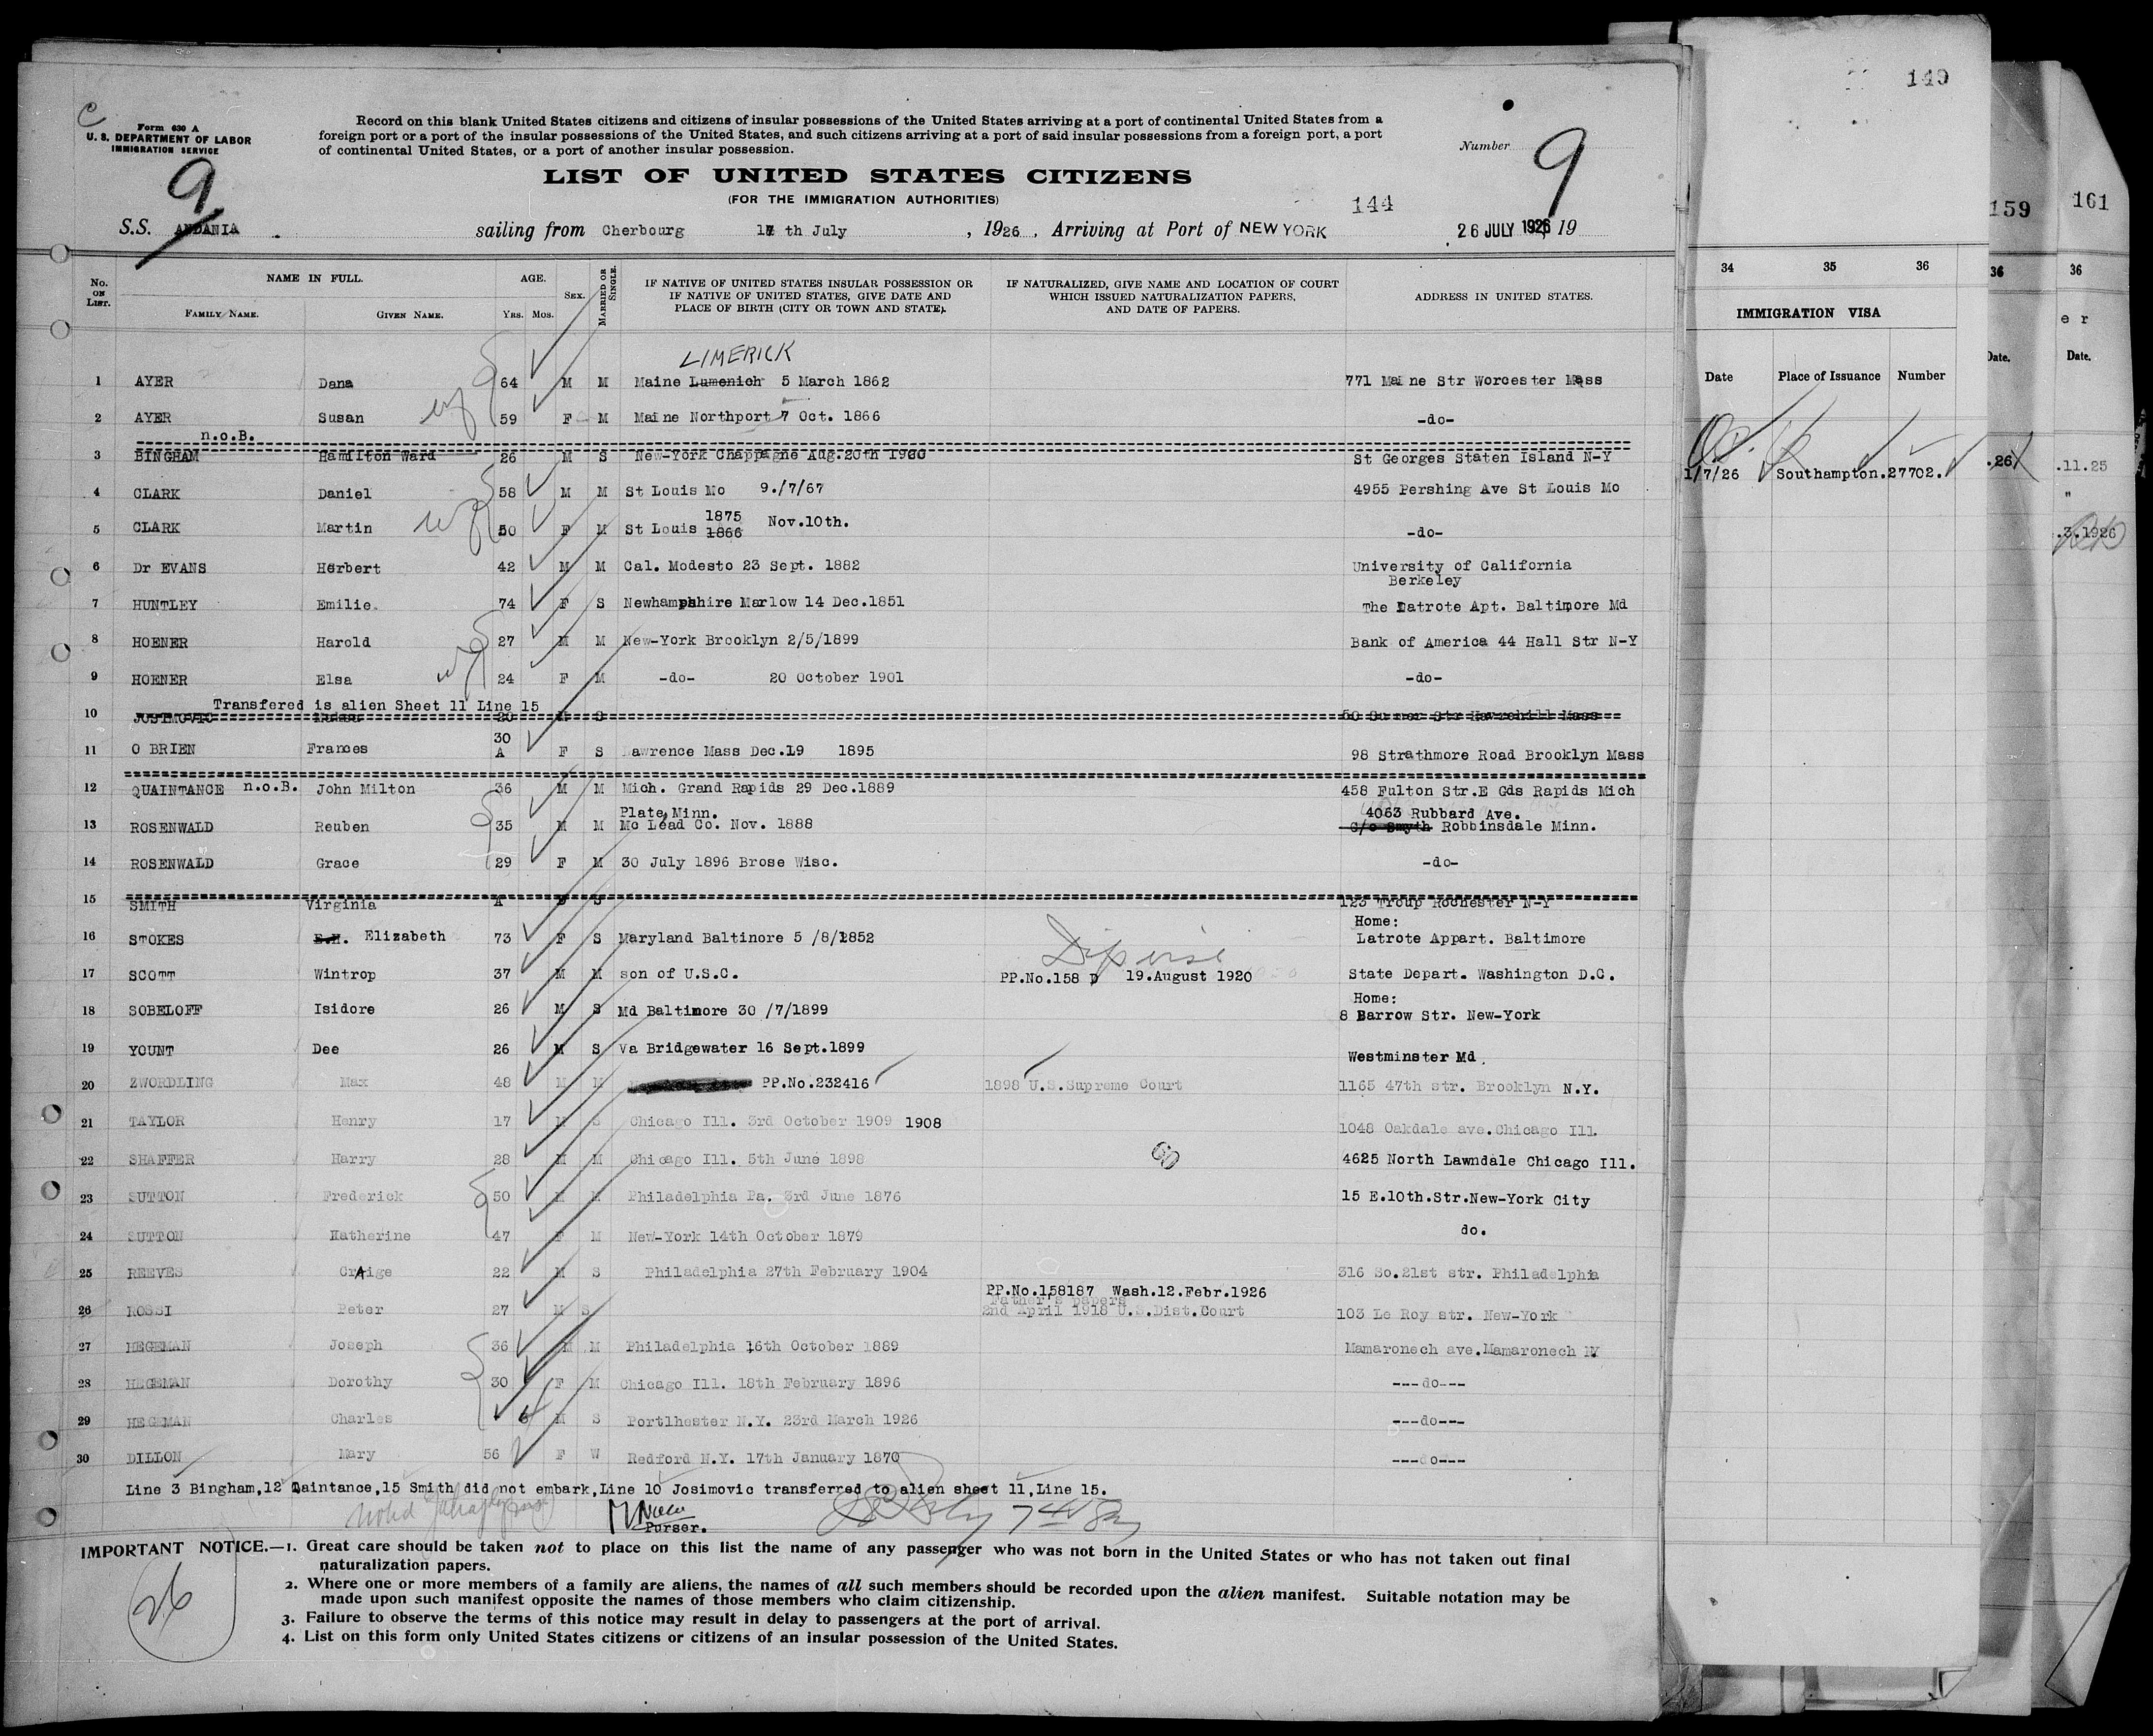 C
Form 630 A
U. S. DEPARTMENT OF LABOR
IMMIGRATION SERVICE
9
Record on this blank United States citizens and citizens of insular possessions of the United States arriving at a port of continental United States from a
foreign port or a port of the insular possessions of the United States, and such citizens arriving at a port of said insular possessions from a foreign port, a port
of continental United States, or a port of another insular possession.
Number 9
LIST OF UNITED STATES CITIZENS
(FOR THE IMMIGRATION AUTHORITIES)
144
S.S. ANDANIA sailing from Cherbourg 17 th July, 1926, Arriving at Port of NEW YORK 26 JULY 1926, 19
No. ON LIST. NAME IN FULL. FAMILY NAME. GIVEN NAME. AGE. YRS. MOS. SEX. MARRIED OR SINGLE. IF NATIVE OF UNITED STATES INSULAR POSSESSION OR IF NATIVE OF UNITED STATES, GIVE DATE AND PLACE OF BIRTH (CITY OR TOWN AND STATE). IF NATURALIZED, GIVE NAME AND LOCATION OF COURT WHICH ISSUED NATURALIZATION PAPERS, AND DATE OF PAPERS. ADDRESS IN UNITED STATES.
LIMERICK
1 AYER Dana 64 M M Maine Lumenich 5 March 1862 771 Maine Str Worcester Mass
2 AYER Susan 59 F M Maine Northport 7 Oct. 1866 -do-
n.o.B.
3 BINGHAM Hamilton Ward 26 M S New-York Chappagne Aug.20th 1900 St Georges Staten Island N-Y
4 CLARK Daniel 58 M M St Louis Mo 9./7/67 4955 Pershing Ave St Louis Mo
1875
5 CLARK Martin 50 F M St Louis 1866 Nov.10th. -do-
6 Dr EVANS Herbert 42 M M Cal. Modesto 23 Sept. 1882 University of California
Berkeley
7 HUNTLEY Emilie. 74 F S Newhampshire Marlow 14 Dec.1851 The Latrote Apt. Baltimore Md
8 HOENER Harold 27 M M New-York Brooklyn 2/5/1899 Bank of America 44 Hall Str N-Y
9 HOENER Elsa 24 F M -do- 20 October 1901 -do-
Transfered is alien Sheet 11 Line 15
10 JOSIMOVIC 20 M S 50 Sumner Str Havrehill Mass
30
11 O BRIEN Frances A F S Lawrence Mass Dec.19 1895 98 Strathmore Road Brooklyn Mass
12 QUAINTANCE n.o.B. John Milton 36 M M Mich. Grand Rapids 29 Dec.1889 458 Fulton Str.E Gds Rapids Mich
Plate, Minn. 4063 Rubbard Ave.
13 ROSENWALD Reuben 35 M M Mc Lead Co. Nov. 1888 C/o Smyth Robbinsdale Minn.
14 ROSENWALD Grace 29 F M 30 July 1896 Brose Wisc. -do-
15 SMITH Virginia A F S 123 Troup Rochester N-Y
Home:
16 STOKES E.H. Elizabeth 73 F S Maryland Baltinore 5 /8/1852 Latrote Appart. Baltimore
17 SCOTT Wintrop 37 M M son of U.S.C. PP.No.158 D 19.August 1920 State Depart. Washington D.C.
Home:
18 SOBELOFF Isidore 26 M S Md Baltimore 30 /7/1899 8 Barrow Str. New-York
19 YOUNT Dee 26 M S Va Bridgewater 16 Sept.1899 Westminster Md.
20 ZWORDLING Max 48 M M PP.No.232416 1898 U.S.Supreme Court 1165 47th str. Brooklyn N.Y.
21 TAYLOR Henry 17 M S Chicago Ill. 3rd October 1909 1908 1048 Oakdale ave.Chicago Ill.
60
22 SHAFFER Harry 28 M M Chicago Ill. 5th June 1898 4625 North Lawndale Chicago Ill.
23 SUTTON Frederick 50 M M Philadelphia Pa. 3rd June 1876 15 E.10th.Str.New-York City
24 SUTTON Katherine 47 F M New-York 14th October 1879 do.
25 REEVES CrAige 22 M S Philadelphia 27th February 1904 316 So.21st str. Philadelphia
PP.No.158187 Wash.12.Febr.1926
Father's papers
26 ROSSI Peter 27 M S 2nd April 1918 U.S.Dist.Court 103 Le Roy str. New-York
27 HEGEMAN Joseph 36 M M Philadelphia 16th October 1889 Mamaronech ave.Mamaronech NY
28 HEGEMAN Dorothy 30 F M Chicago Ill. 18th February 1896 ---do---
29 HEGEMAN Charles 6 M S Portlhester N.Y. 23rd March 1926 ---do---
30 DILLON Mary 56 F W Redford N.Y. 17th January 1870 ---do---
Line 3 Bingham,12 Qaintance,15 Smith did not embark,Line 10 Josimovic transferred to alien sheet 11,Line 15.
Purser.
IMPORTANT NOTICE.—1. Great care should be taken not to place on this list the name of any passenger who was not born in the United States or who has not taken out final
naturalization papers.
2. Where one or more members of a family are aliens, the names of all such members should be recorded upon the alien manifest. Suitable notation may be
made upon such manifest opposite the names of those members who claim citizenship.
3. Failure to observe the terms of this notice may result in delay to passengers at the port of arrival.
4. List on this form only United States citizens or citizens of an insular possession of the United States.
26
149
34 35 36
IMMIGRATION VISA
Date Place of Issuance Number
1/7/26 Southampton. 27702.
159
36
Date.
.26
161
36
er
Date.
.11.25
"
.3.1926